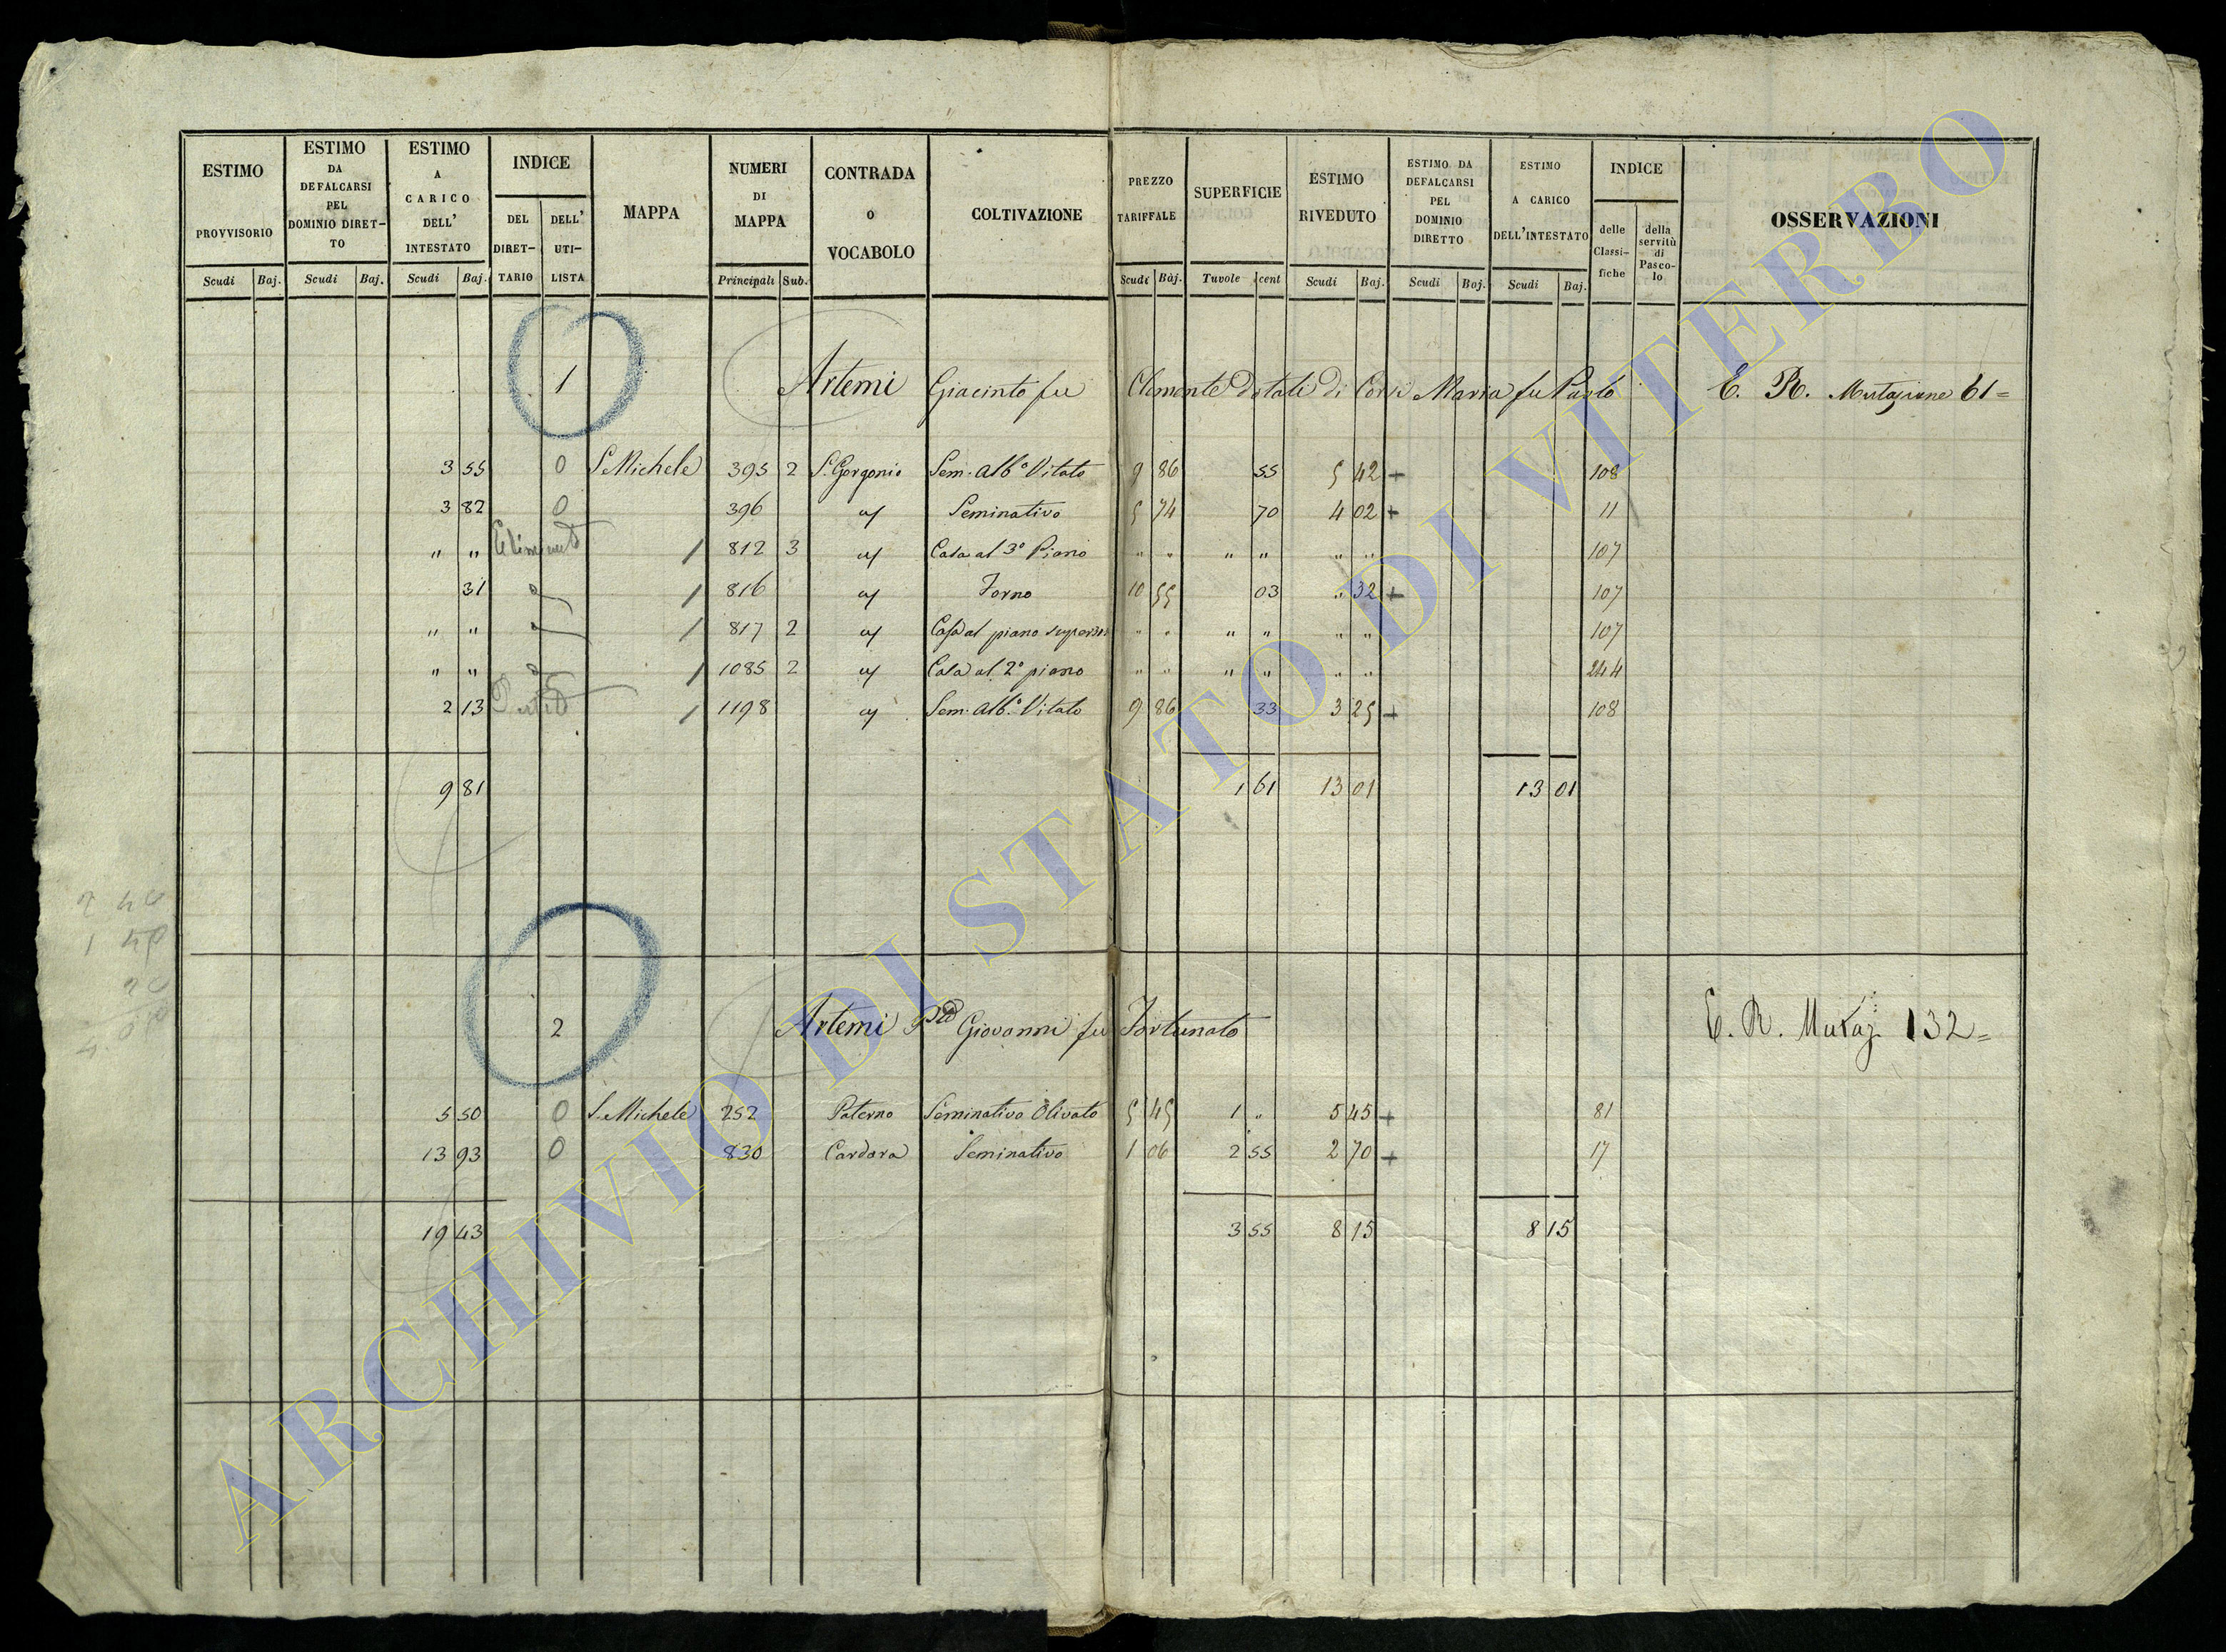 ESTIMO PROVVISORIO Scudi Baj.
ESTIMO DA DEFALCARSI PEL DOMINIO DIRET-TO Scudi Baj.
ESTIMO A CARICO DELL' INTESTATO Scudi Baj.
INDICE DEL DIRET-TARIO DELL' UTI-LISTA
MAPPA
NUMERI DI MAPPA Principali Sub.
CONTRADA O VOCABOLO
COLTIVAZIONE
PREZZO TARIFFALE Scudi Baj.
SUPERFICIE Tavole cent
ESTIMO RIVEDUTO Scudi Baj.
ESTIMO DA DEFALCARSI PEL DOMINIO DIRETTO Scudi Baj.
ESTIMO A CARICO DELL'INTESTATO Scudi Baj.
INDICE delle Classi-fiche della servitù di Pasco-lo
OSSERVAZIONI
1 Artemi Giacinto fu Clemente Dotali di Corsi Maria fu Paolo E. R. Mutazione 61=
3 55 0 S. Michele 395 2 S. Gorgonio Sem. Alb.o Vitato 9 86 55 5 42 + 108
3 82 0 396 Seminativo 5 74 70 4 02 + 11
" " / 812 3 Casa al 3.o Piano " " " " " " 107
31 / 816 Forno 10 55 03 " 32 + 107
" " / 817 2 Casa al piano superiore " " " " " " 107
" " / 1085 2 Casa al 2.o piano " " " " " " 244
2 13 / 1198 Sem. Alb.o Vitato 9 86 33 3 25 + 108
9 81 1 61 13 01 13 01
2 Artemi Giovanni fu Fortunato E. R. Mutaz. 132=
5 50 0 S. Michele 252 Paterno Seminativo Olivato 5 45 1 " 5 45 + 81
13 93 0 830 Cardara Seminativo 1 06 2 55 2 70 + 17
19 43 3 55 8 15 8 15
ARCHIVIO DI STATO DI VITERBO